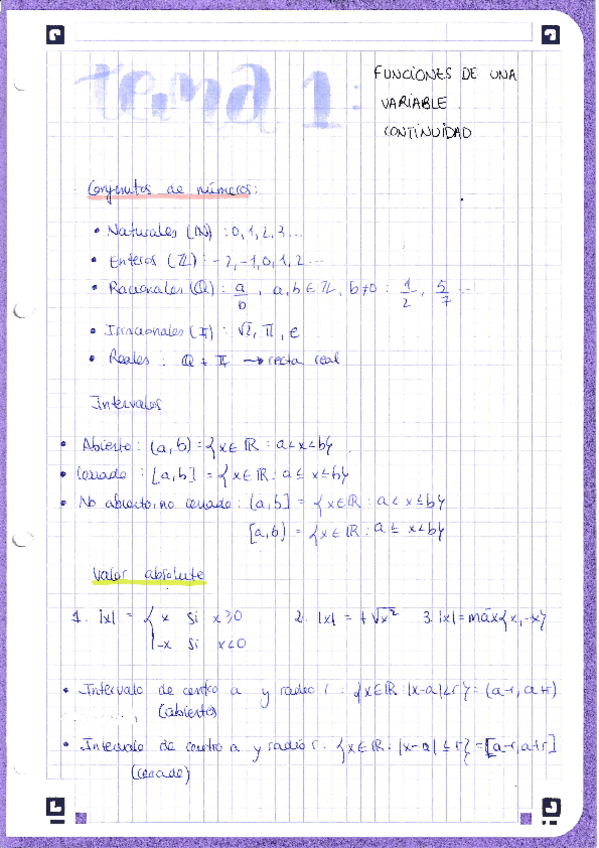 tema 1:
FUNCIONES DE UNA
VARIABLE
CONTINUIDAD
Conjuntos de números:
• Naturales (ℕ) : 0, 1, 2, 3 ...
• Enteros (ℤ) : -2, -1, 0, 1, 2 ...
• Racionales (ℚ) : a/b , a, b ∈ ℤ, b≠0 : 1/2 , 5/7 ...
• Irracionales (𝕀) : √2, π, e
• Reales : ℚ + 𝕀 → recta real
Intervalos
• Abierto : (a, b) = {x ∈ ℝ : a < x < b}
• Cerrado : [a, b] = {x ∈ ℝ : a ≤ x ≤ b}
• No abierto, no cerrado : (a, b] = {x ∈ ℝ : a < x ≤ b}
[a, b) = {x ∈ ℝ : a ≤ x < b}
Valor absoluto
1. |x| = { x si x ≥ 0 2. |x| = +√x² 3. |x| = máx{x, -x}
-x si x < 0
• Intervalo de centro a y radio r : {x ∈ ℝ : |x-a| < r} = (a-r, a+r)
(abierto)
• Intervalo de centro a y radio r : {x ∈ ℝ : |x-a| ≤ r} = [a-r, a+r]
(cerrado)